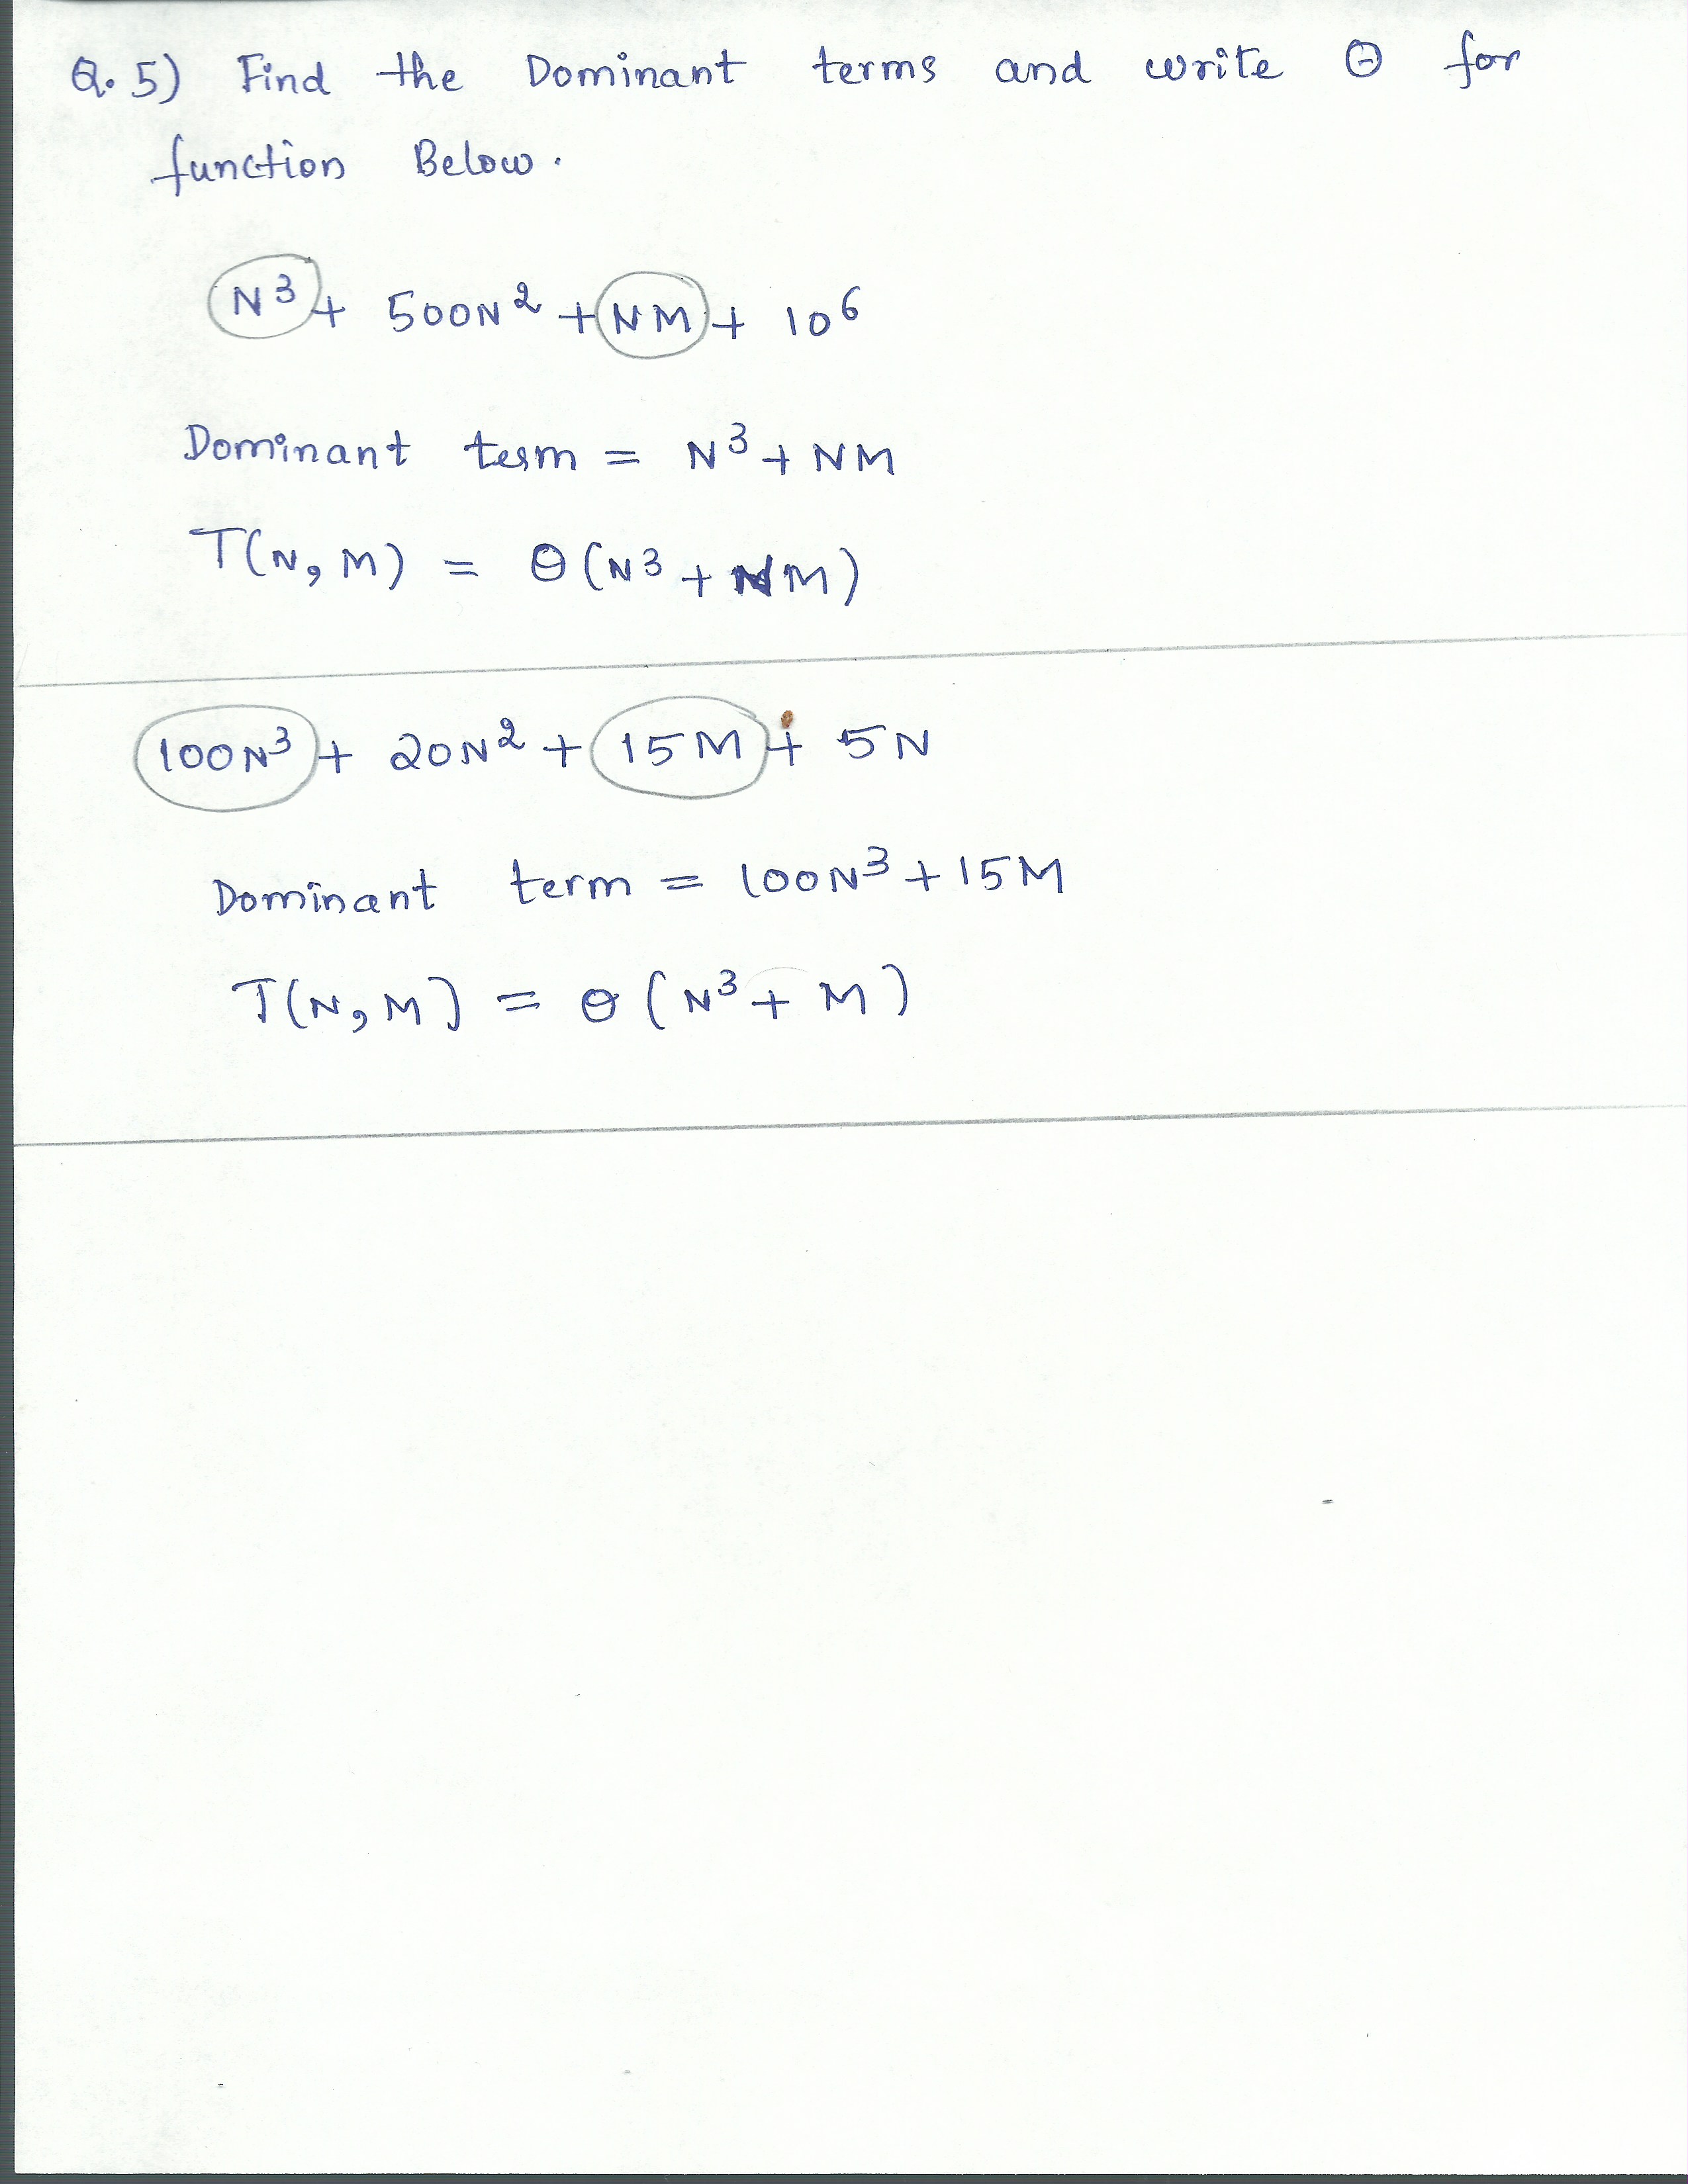 Q.5) Find the Dominant terms and write Θ for
function Below.
N³ + 500N² + NM + 10⁶
Dominant term = N³ + NM
T(N, M) = Θ(N³ + NM)
100N³ + 20N² + 15M + 5N
Dominant term = 100N³ + 15M
T(N, M) = Θ(N³ + M)